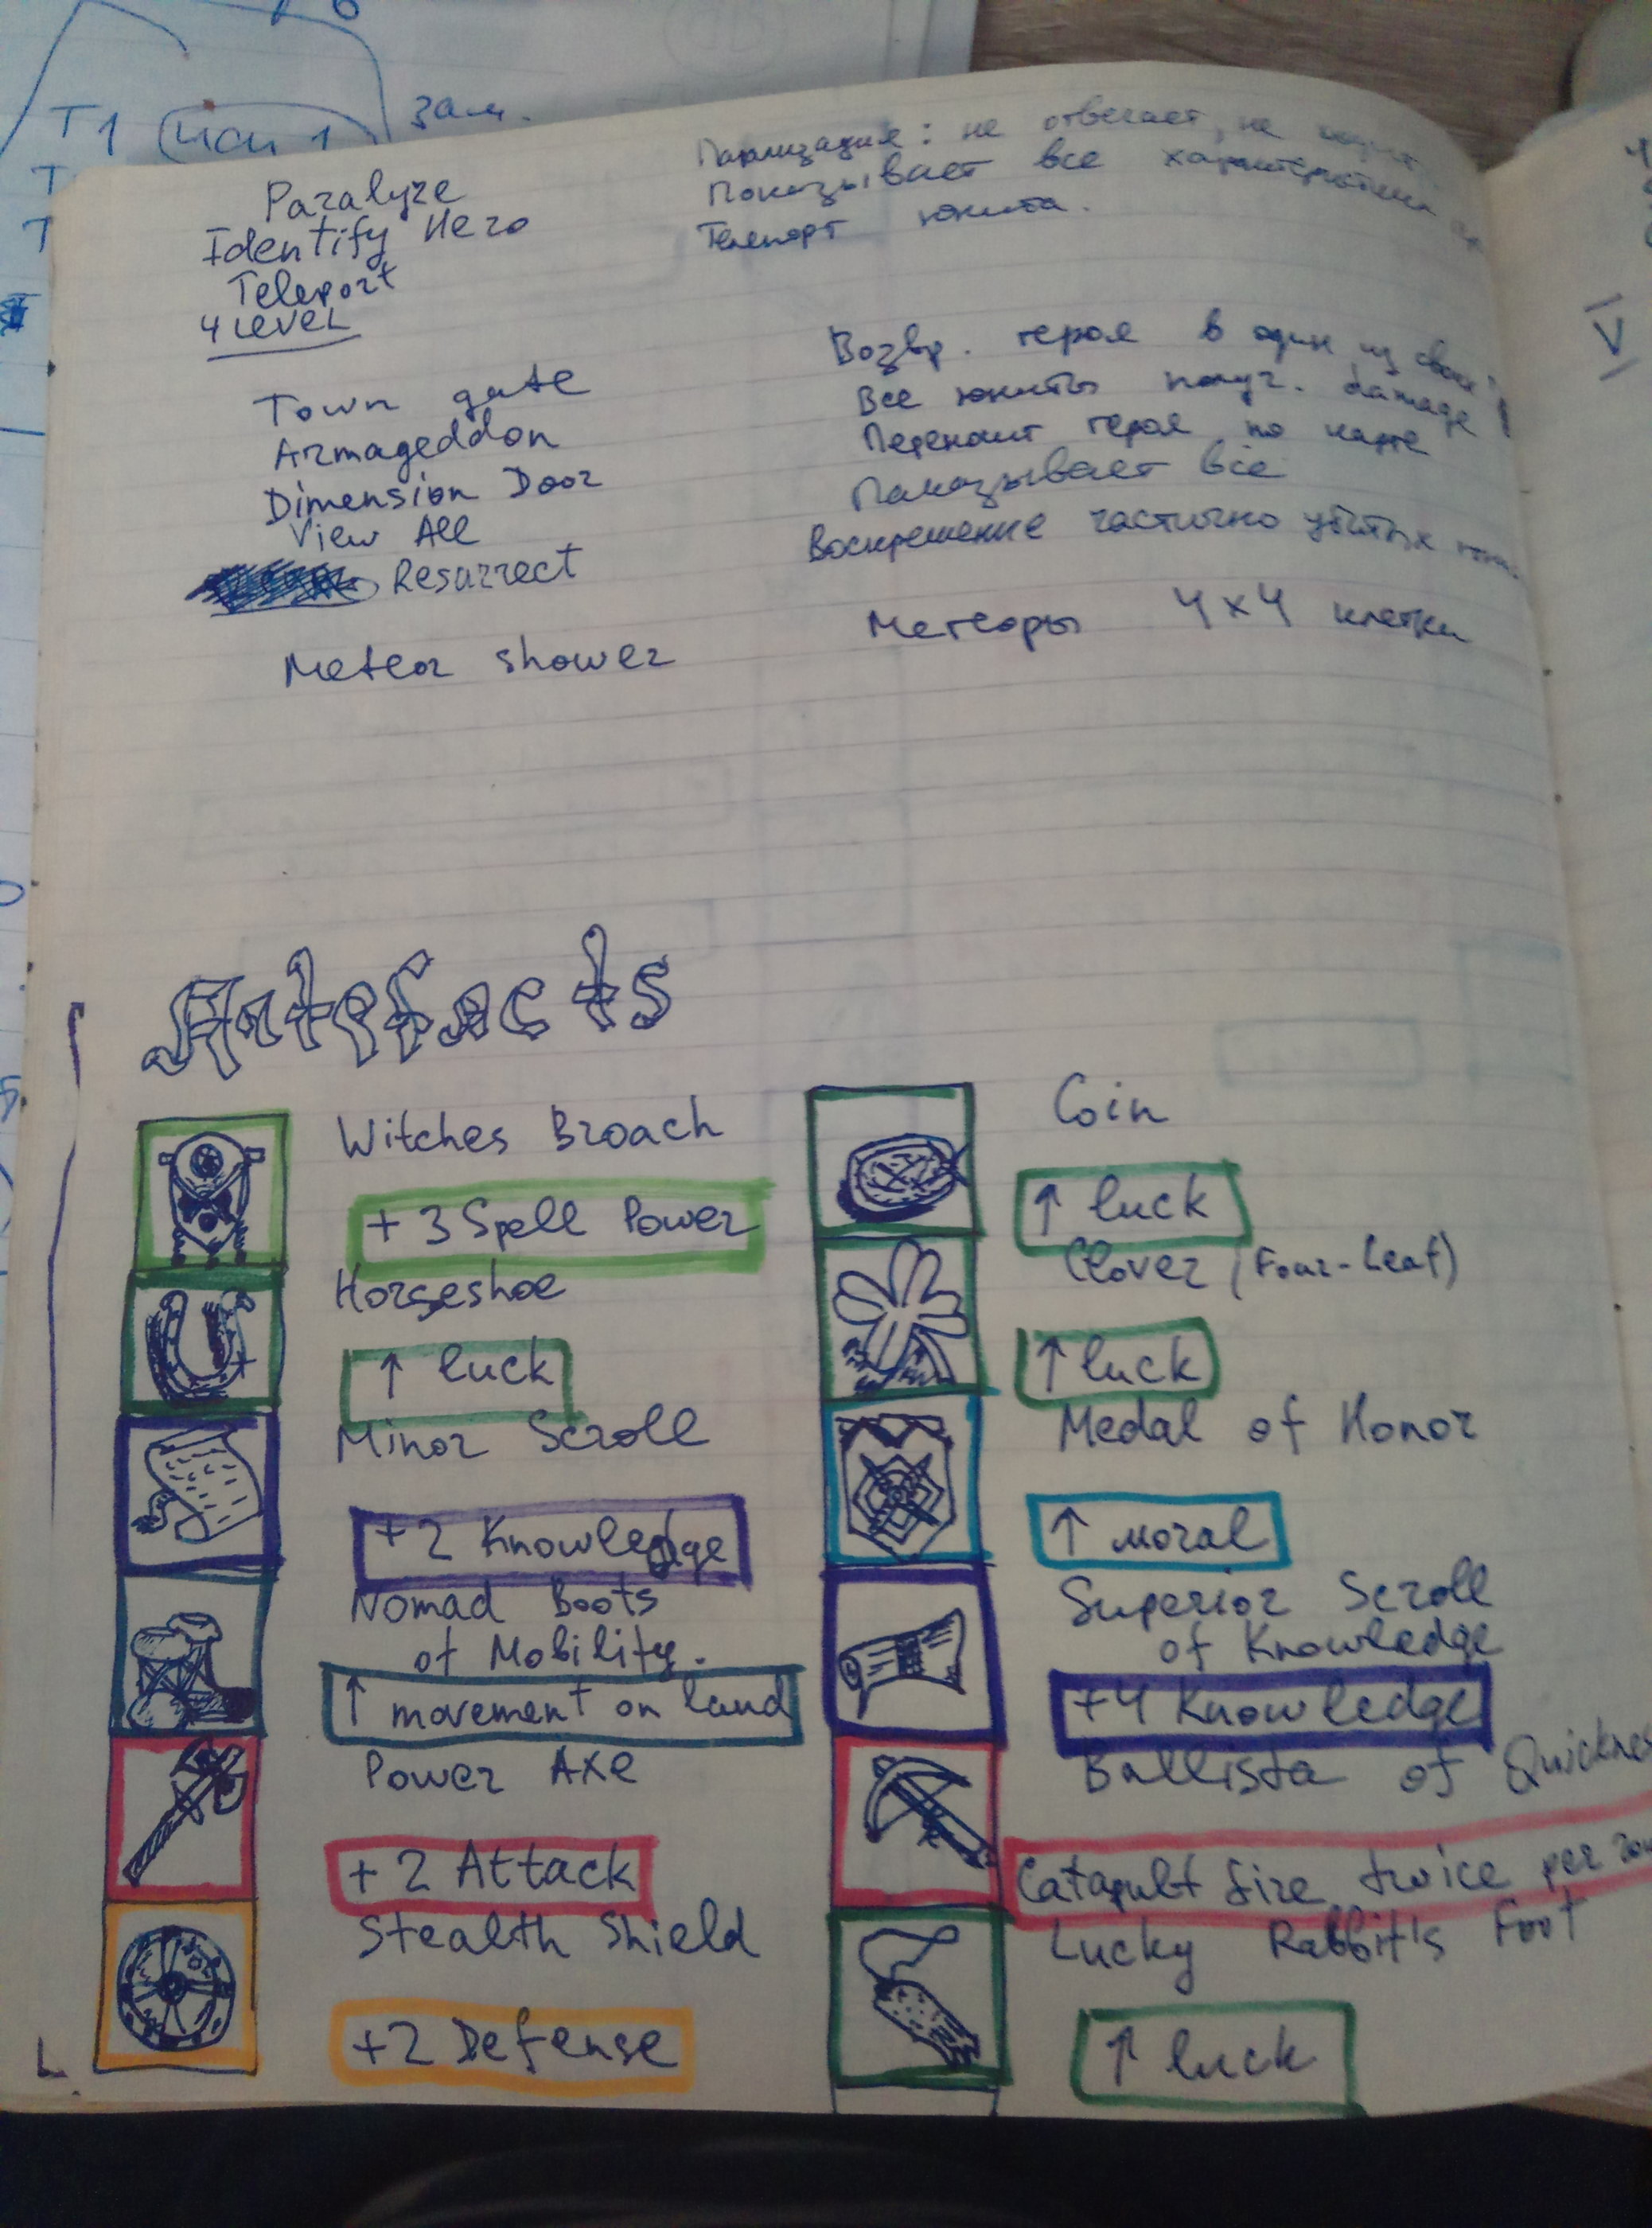 T1 зам.
T
T
Paralyze
Парализация: не отвечает, не
Identify Hero
Показывает все характеристики
Teleport
Телепорт юнита.
4 LEVEL
Town gate
Возвр. героя в один из своих
Armageddon
Все юниты получ. damage
Dimension Door
Переносит героя по карте
View All
Показывает всё
Resurrect
Воскрешение частично убитых
Meteor shower
Метеоры 4x4 клетки
V
Artefacts
Witches Broach
+3 Spell Power
Horseshoe
↑ luck
Minor Scroll
+2 Knowledge
Nomad Boots
of Mobility.
↑ movement on land
Power Axe
+2 Attack
Stealth Shield
+2 Defense
Coin
↑ luck
Clover (Four-Leaf)
↑ luck
Medal of Honor
↑ moral
Superior Scroll
of Knowledge
+4 Knowledge
Ballista of Quicknes
Catapult fire twice per
Lucky Rabbit's Foot
↑ luck